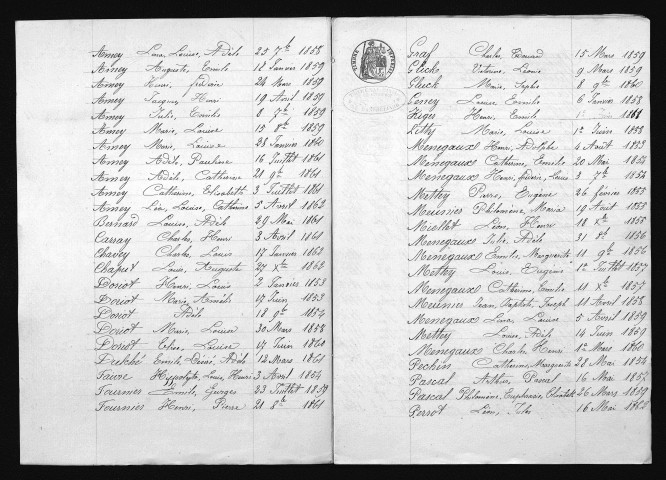 Amey Lina, Louise, Adèle 25 7bre 1858
Amey Auguste, Emile 12 Janvier 1859
Amey Henri, frédéric 24 Mars 1859
Amey Jacques, Henri 19 Avril 1859
Amey Julie, Emilie 8 7bre 1859
Amey Marie, Louise 15 8bre 1859
Amey Marie, Louise 28 Janvier 1860
Amey Adèle, Pauline 16 Juillet 1861
Amey Adèle, Catherine 21 9bre 1861
Amey Catherine, Elisabeth 3 Juillet 1861
Amey Léa, Louise, Catherine 5 Avril 1862
Bernard Louise, Adèle 29 Mai 1861
Carray Charles, Henri 3 Avril 1861
Chavey Charles, Louis 17 Janvier 1862
Chapuis Louis, Auguste 27 Xbre 1862
Doriot Henri, Louis 2 Janvier 1853
Doriot Marie, Amélie 17 Juin 1853
Doriot Adèle 18 9bre 1854
Doriot Marie, Louise 30 Mars 1858
Doriot Elise, Louise 17 Juin 1860
Emile, Adèle 12 Mars 1861
Faivre Hyppolyte, Louis, Henri 3 Avril 1854
Fournier Emile, Georges 23 Juillet 1859
Fournier Henri, Pierre 21 8bre 1861
Graf Charles, Edouard 15 Mars 1859
Glück Victorine, Léonie 9 Mars 1859
Glück Marie, Sophie 8 9bre 1860
Louise Emilie 6 Janvier 1858
Henri, Emile 1861
Marie, Louise 1er Juin 1858
Menegaux Henri, Adolphe 4 Août 1853
Menegaux Catherine, Emilie 20 Mai 1854
Menegaux Henri, frédéric, Louis 3 7bre 1854
Metthey Pierre, Eugène 26 février 1855
Meunier Philomène, Maria 19 Août 1855
Miellet Léon, Henri 18 Xbre 1855
Menegaux Julie, Adèle 31 8bre 1856
Menegaux Emilie, Marguerite 11 9bre 1856
Metthey Louis, Eugène 1er Juillet 1857
Menegaux Catherine, Emilie 11 Xbre 1857
Meunier Jean, Baptiste, Joseph 11 Avril 1858
Menegaux Lina, Louise 5 Avril 1859
Metthey Louise, Adèle 14 Juin 1859
Menegaux Charles, Henri 1er Mars 1860
Pechin Catherine, Marguerite 28 Mai 1854
Pascal Arthur, Pierre 16 Mai 1857
Pascal Philomène, Euphrasie, Elisabeth 26 Mars 1859
Perrot Léon, Jules 16 Mai 1862